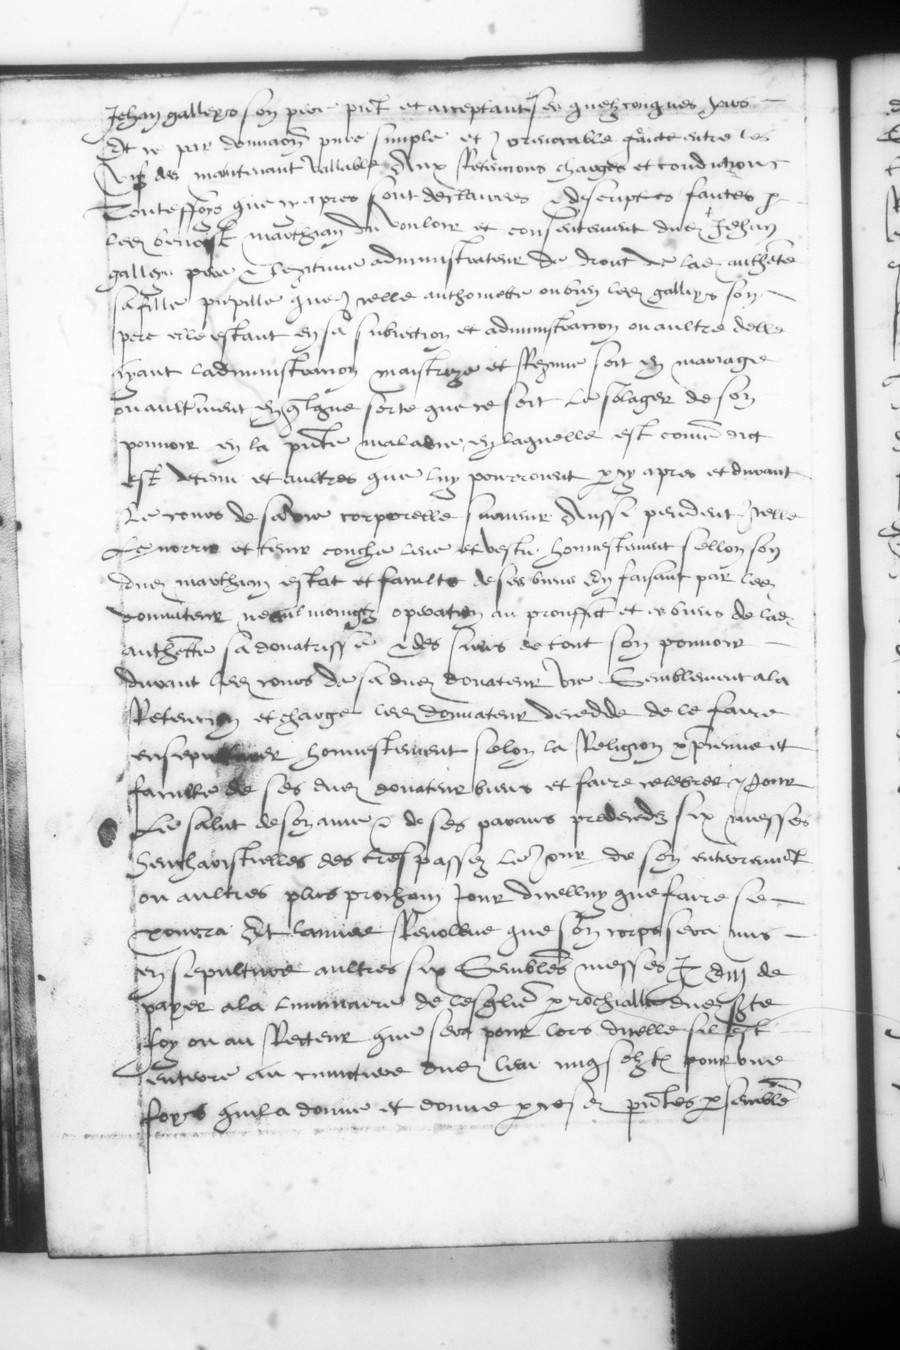 Jehan galleys son pere pnt et acceptant ses quelzconques
Et ce par donnaon pure simple et irrevocable faicte entre les
vifz des maintenant vallable Aux Retencions charges et condicions
Touteffoys que cy apres sont desclairees & descriptes faictes p
led benoist marthian du vouloir et consentement dud Jehan
galleys pere & legitime administrateur de droict de lad anthte
sa fille pupille que icelle anthonette ou bien led galleys son
pere elle estant en sa subiection et administracion ou aultre delle
ayant ladministracion maistrize et Regime soit en mariage
ou aultment en qlque sorte que ce soit le solager de son
pouvoir en la pnte maladie en laquelle est comme dict
est detenu et aultres que luy pourroient p cy apres et durant
le cours de sa vie corporelle survenir Aussi pendent icelle
le norrir et tenir couche leve et vestu honnestement sellon son
dud marthian estat et faculte de ses biens En faisant par led
donnateur neaulmoingz operation au prouffict et es biens de lad
anthte sa donatrisse & des siens de tout son pouvoir
durant led cours de sa dud donateur vie Semblement a la
Retencion et charge led donnateur decedde de le faire
ensepulturer honnestement selon la Religion xpienne et
faculte de ses dud donateur biens et faire celebrer pour
le salut de son ame & de ses parans predecedz six messes
heucharistielles des trespassez le jour de son enterrement
ou aultres plus prochain jour dicelluy que faire se
pourra Et lannee Revollue que son corps sera mis
en sepulture aultres six Sembles messes Et de
payer a la luminaire de lesglise prochialle dud ste
foy ou au Recteur que sera pour lors dicelle sil est
enterre au cimetiere dud lieu ung pour une
foys quil a donne et donne p ces pntes p semble